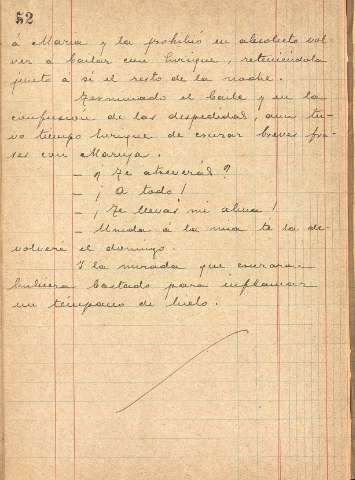 52
á Maria y la prohibió en absoluto vol-
ver á bailar con Enrique, reteniéndola
junto a si el resto de la noche.
Terminado el baile y en la
confusion de las despedidas, aun tu-
vo tiempo Enrique de cruzar breves fra-
ses con Maruja.
- ¿Te atreverás?
- ¡A todo!
- ¡Te llevas mi alma!
- Unida á la mia te la de-
volveré el domingo.
Y la mirada que cruzaran
hubiera bastado para inflamar
un témpano de hielo.